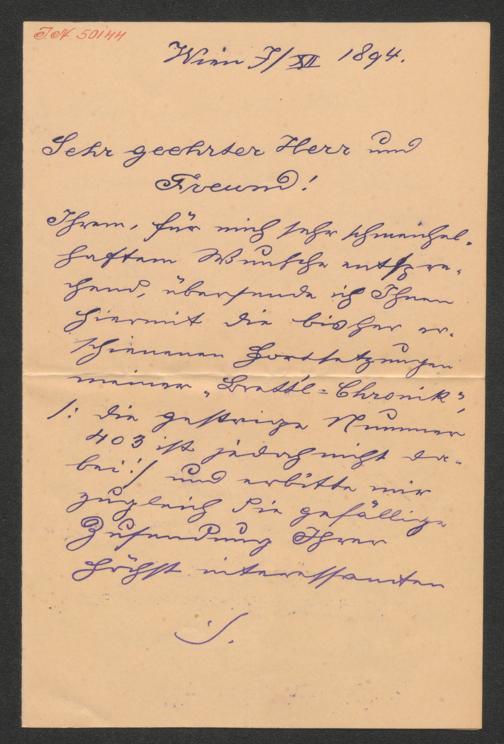 I.N. 50144
Wien 7/XII 1894.
Sehr geehrter Herr und
Freund!
Ihrem, für mich sehr schmeichel-
haften Wunsche entspre-
chend, übersende ich Ihnen
hiermit die bisher er-
schienenen Fortsetzungen
meiner „Brettl=Chronik“,
/: die gestrige Nummer
403 ist jedoch nicht da-
bei :/ und erbitte mir
zugleich die gefällige
Zusendung Ihrer
höchst interessanten
./.